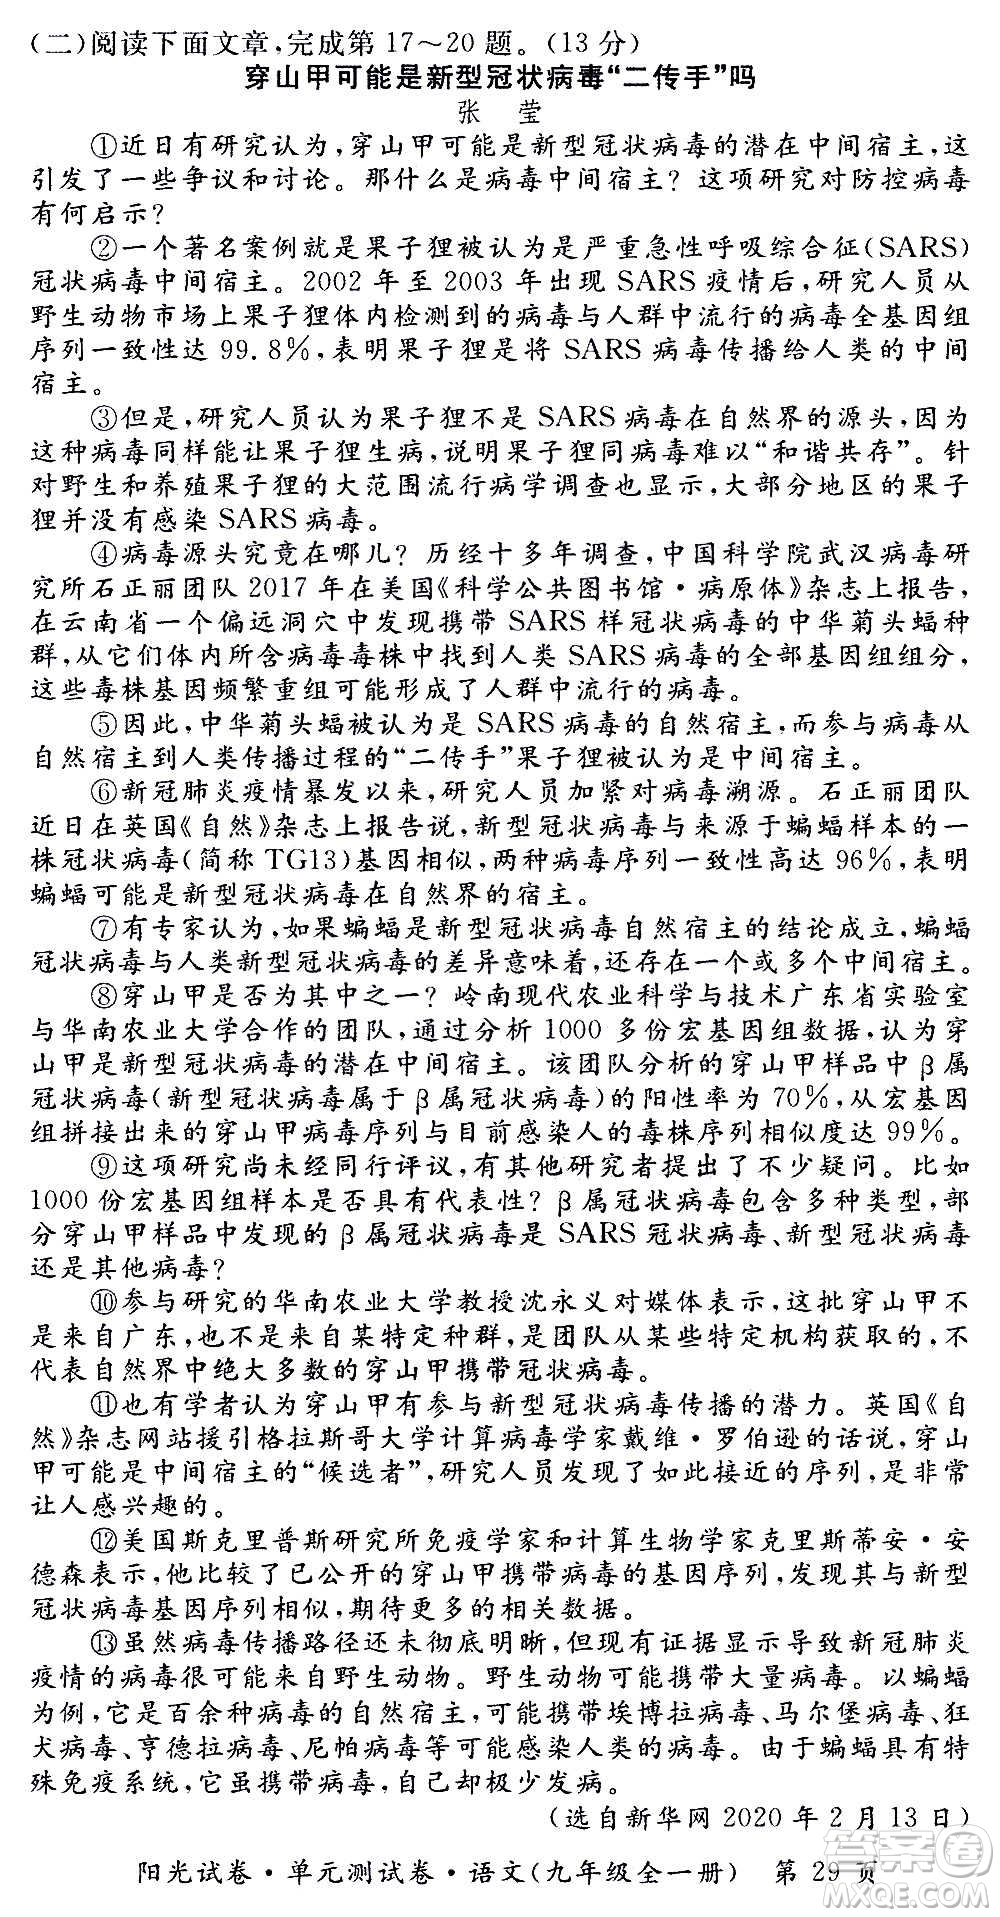 (二)阅读下面文章,完成第17～20题。(13分)
穿山甲可能是新型冠状病毒“二传手”吗
张　莹
①近日有研究认为,穿山甲可能是新型冠状病毒的潜在中间宿主,这
引发了一些争议和讨论。那什么是病毒中间宿主？这项研究对防控病毒
有何启示？
②一个著名案例就是果子狸被认为是严重急性呼吸综合征(SARS)
冠状病毒中间宿主。2002年至2003年出现SARS疫情后,研究人员从
野生动物市场上果子狸体内检测到的病毒与人群中流行的病毒全基因组
序列一致性达99.8%,表明果子狸是将SARS病毒传播给人类的中间
宿主。
③但是,研究人员认为果子狸不是SARS病毒在自然界的源头,因为
这种病毒同样能让果子狸生病,说明果子狸同病毒难以“和谐共存”。针
对野生和养殖果子狸的大范围流行病学调查也显示,大部分地区的果子
狸并没有感染SARS病毒。
④病毒源头究竟在哪儿？历经十多年调查,中国科学院武汉病毒研
究所石正丽团队2017年在美国《科学公共图书馆·病原体》杂志上报告,
在云南省一个偏远洞穴中发现携带SARS样冠状病毒的中华菊头蝠种
群,从它们体内所含病毒毒株中找到人类SARS病毒的全部基因组组分,
这些毒株基因频繁重组可能形成了人群中流行的病毒。
⑤因此,中华菊头蝠被认为是SARS病毒的自然宿主,而参与病毒从
自然宿主到人类传播过程的“二传手”果子狸被认为是中间宿主。
⑥新冠肺炎疫情暴发以来,研究人员加紧对病毒溯源。石正丽团队
近日在英国《自然》杂志上报告说,新型冠状病毒与来源于蝙蝠样本的一
株冠状病毒(简称TG13)基因相似,两种病毒序列一致性高达96%,表明
蝙蝠可能是新型冠状病毒在自然界的宿主。
⑦有专家认为,如果蝙蝠是新型冠状病毒自然宿主的结论成立,蝙蝠
冠状病毒与人类新型冠状病毒的差异意味着,还存在一个或多个中间宿主。
⑧穿山甲是否为其中之一？岭南现代农业科学与技术广东省实验室
与华南农业大学合作的团队,通过分析1000多份宏基因组数据,认为穿
山甲是新型冠状病毒的潜在中间宿主。该团队分析的穿山甲样品中β属
冠状病毒(新型冠状病毒属于β属冠状病毒)的阳性率为70%,从宏基因
组拼接出来的穿山甲病毒序列与目前感染人的毒株序列相似度达99%。
⑨这项研究尚未经同行评议,有其他研究者提出了不少疑问。比如
1000份宏基因组样本是否具有代表性？β属冠状病毒包含多种类型,部
分穿山甲样品中发现的β属冠状病毒是SARS冠状病毒、新型冠状病毒
还是其他病毒？
⑩参与研究的华南农业大学教授沈永义对媒体表示,这批穿山甲不
是来自广东,也不是来自某特定种群,是团队从某些特定机构获取的,不
代表自然界中绝大多数的穿山甲携带冠状病毒。
⑪也有学者认为穿山甲有参与新型冠状病毒传播的潜力。英国《自
然》杂志网站援引格拉斯哥大学计算病毒学家戴维·罗伯逊的话说,穿山
甲可能是中间宿主的“候选者”,研究人员发现了如此接近的序列,是非常
让人感兴趣的。
⑫美国斯克里普斯研究所免疫学家和计算生物学家克里斯蒂安·安
德森表示,他比较了已公开的穿山甲携带病毒的基因序列,发现其与新型
冠状病毒基因序列相似,期待更多的相关数据。
⑬虽然病毒传播路径还未彻底明晰,但现有证据显示导致新冠肺炎
疫情的病毒很可能来自野生动物。野生动物可能携带大量病毒。以蝙蝠
为例,它是百余种病毒的自然宿主,可能携带埃博拉病毒、马尔堡病毒、狂
犬病毒、亨德拉病毒、尼帕病毒等可能感染人类的病毒。由于蝙蝠具有特
殊免疫系统,它虽携带病毒,自己却极少发病。
(选自新华网2020年2月13日)
阳光试卷·单元测试卷·语文(九年级全一册)　第29页
答案卷
MXQE.COM